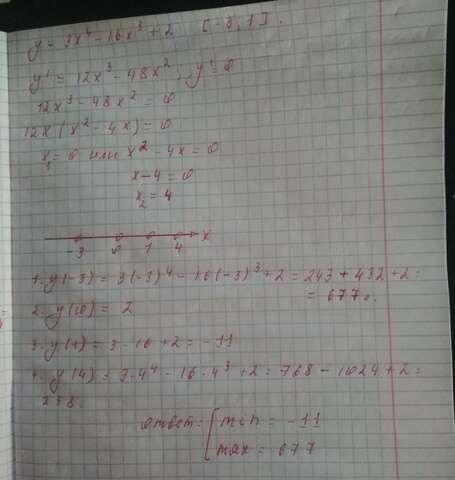 y = 3x⁴ - 16x³ + 2 [-3, 1].
y' = 12x³ - 48x², y' = 0
12x³ - 48x² = 0
12x (x² - 4x) = 0
x₁ = 0 или x² - 4x = 0
x - 4 = 0
x₂ = 4
-3 0 1 4 x
1. y(-3) = 3(-3)⁴ - 16(-3)³ + 2 = 243 + 432 + 2 =
= 677.
2. y(0) = 2
3. y(1) = 3 - 16 + 2 = -11
4. y(4) = 3·4⁴ - 16·4³ + 2 = 768 - 1024 + 2 =
ответ: min = -11
max = 677